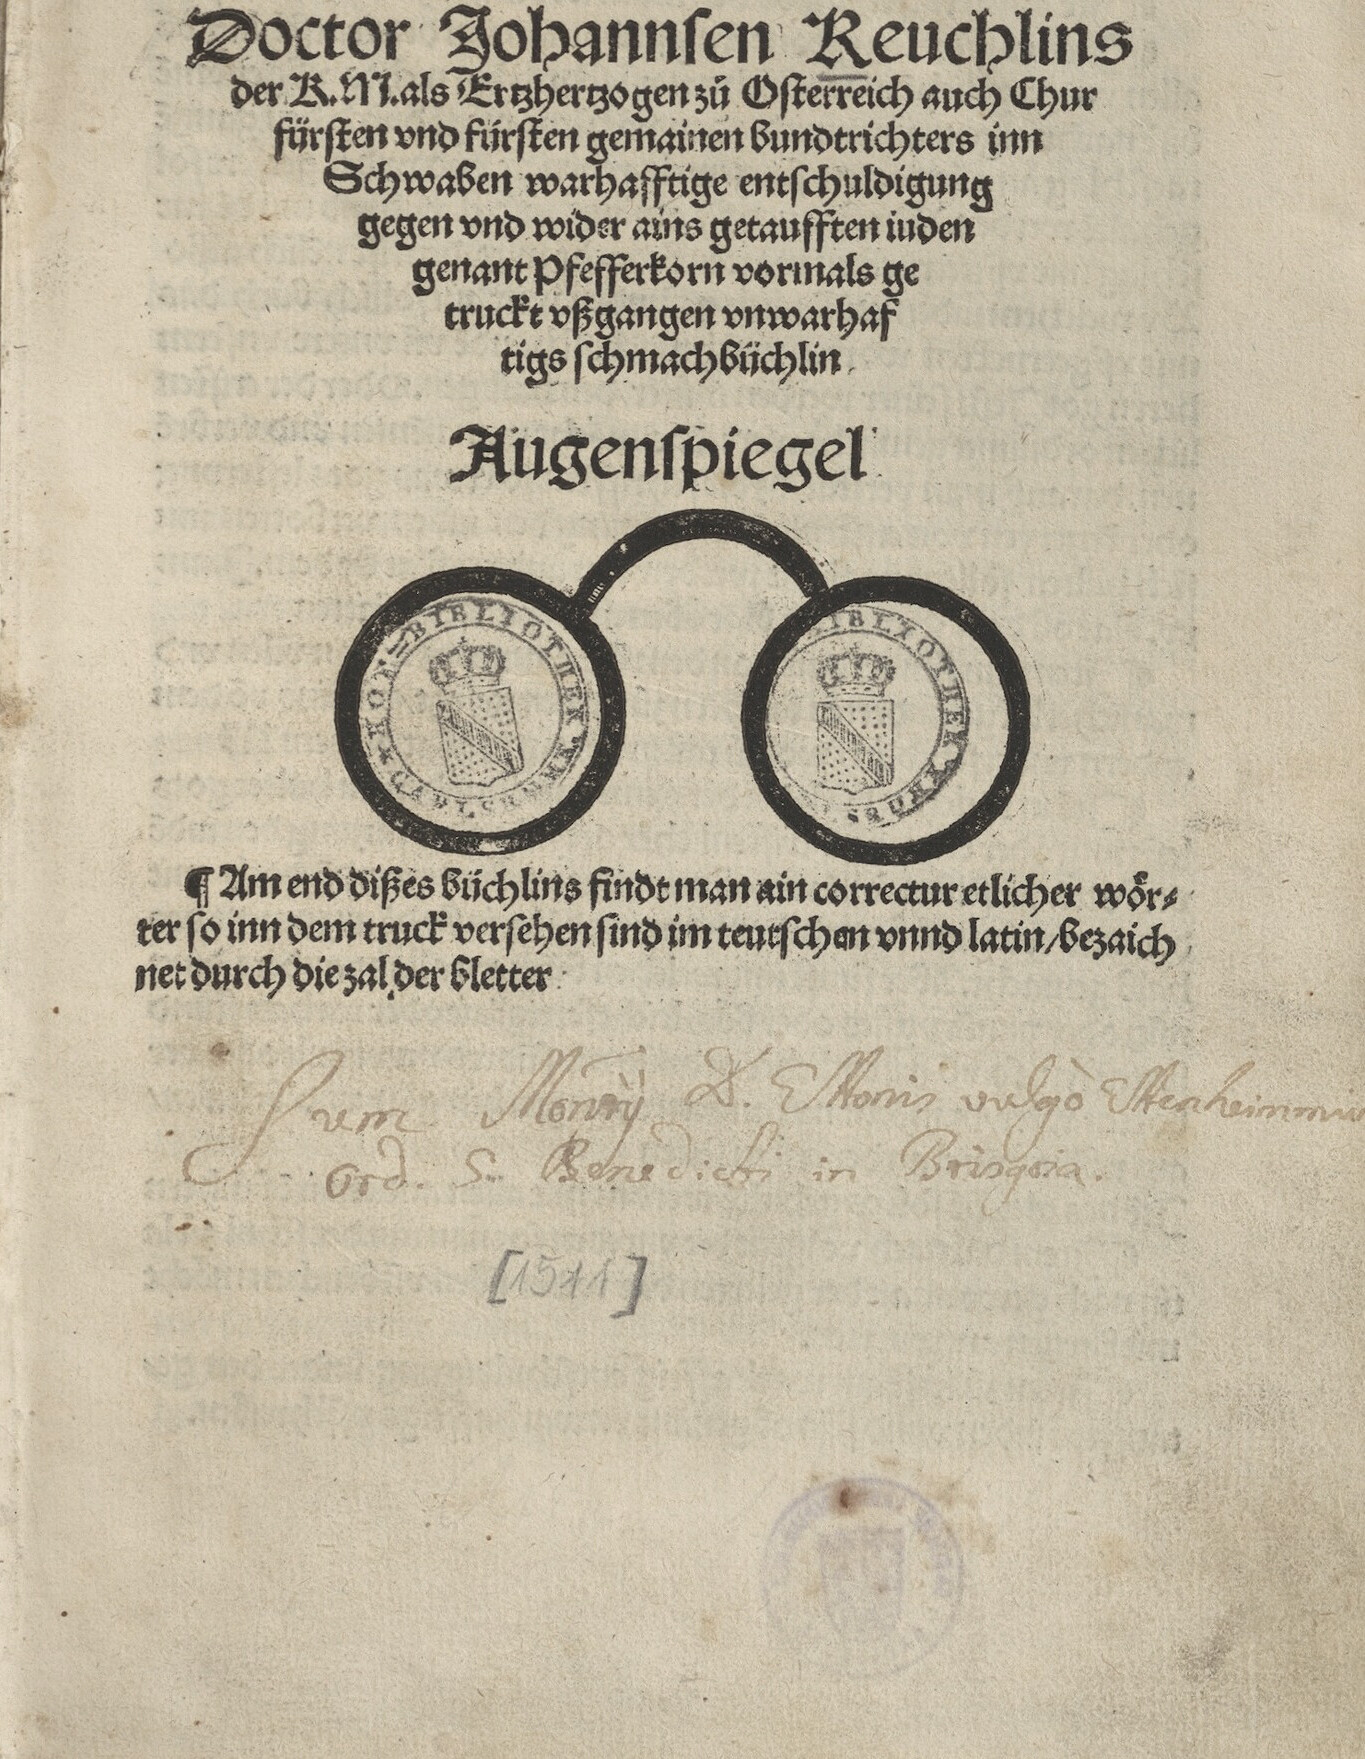 Doctor Johannsen Reuchlins
der K.M. als Ertzhertzogen zů Osterreich auch Chur
fürsten vnd fürsten gemainen bundtrichters inn
Schwaben warhafftige entschuldigung
gegen vnd wider ains getaufften iuden
genant Pfefferkorn vormals ge
truckt vßgangen vnwarhaf
tigs schmachbüchlin.
Augenspiegel
HOF=BIBLIOTHEK
BIBLIOTHEK
¶ Am end dißes büchlins findt man ain correctur etlicher woͤr⸗
ter so inn dem truck versehen sind im teutschen vnnd latin/bezaich
net durch die zal der bletter
Sum Monrÿ D. Ettonis vulgò
Ord. S. Benedicti in Brisgoia.
[1511]